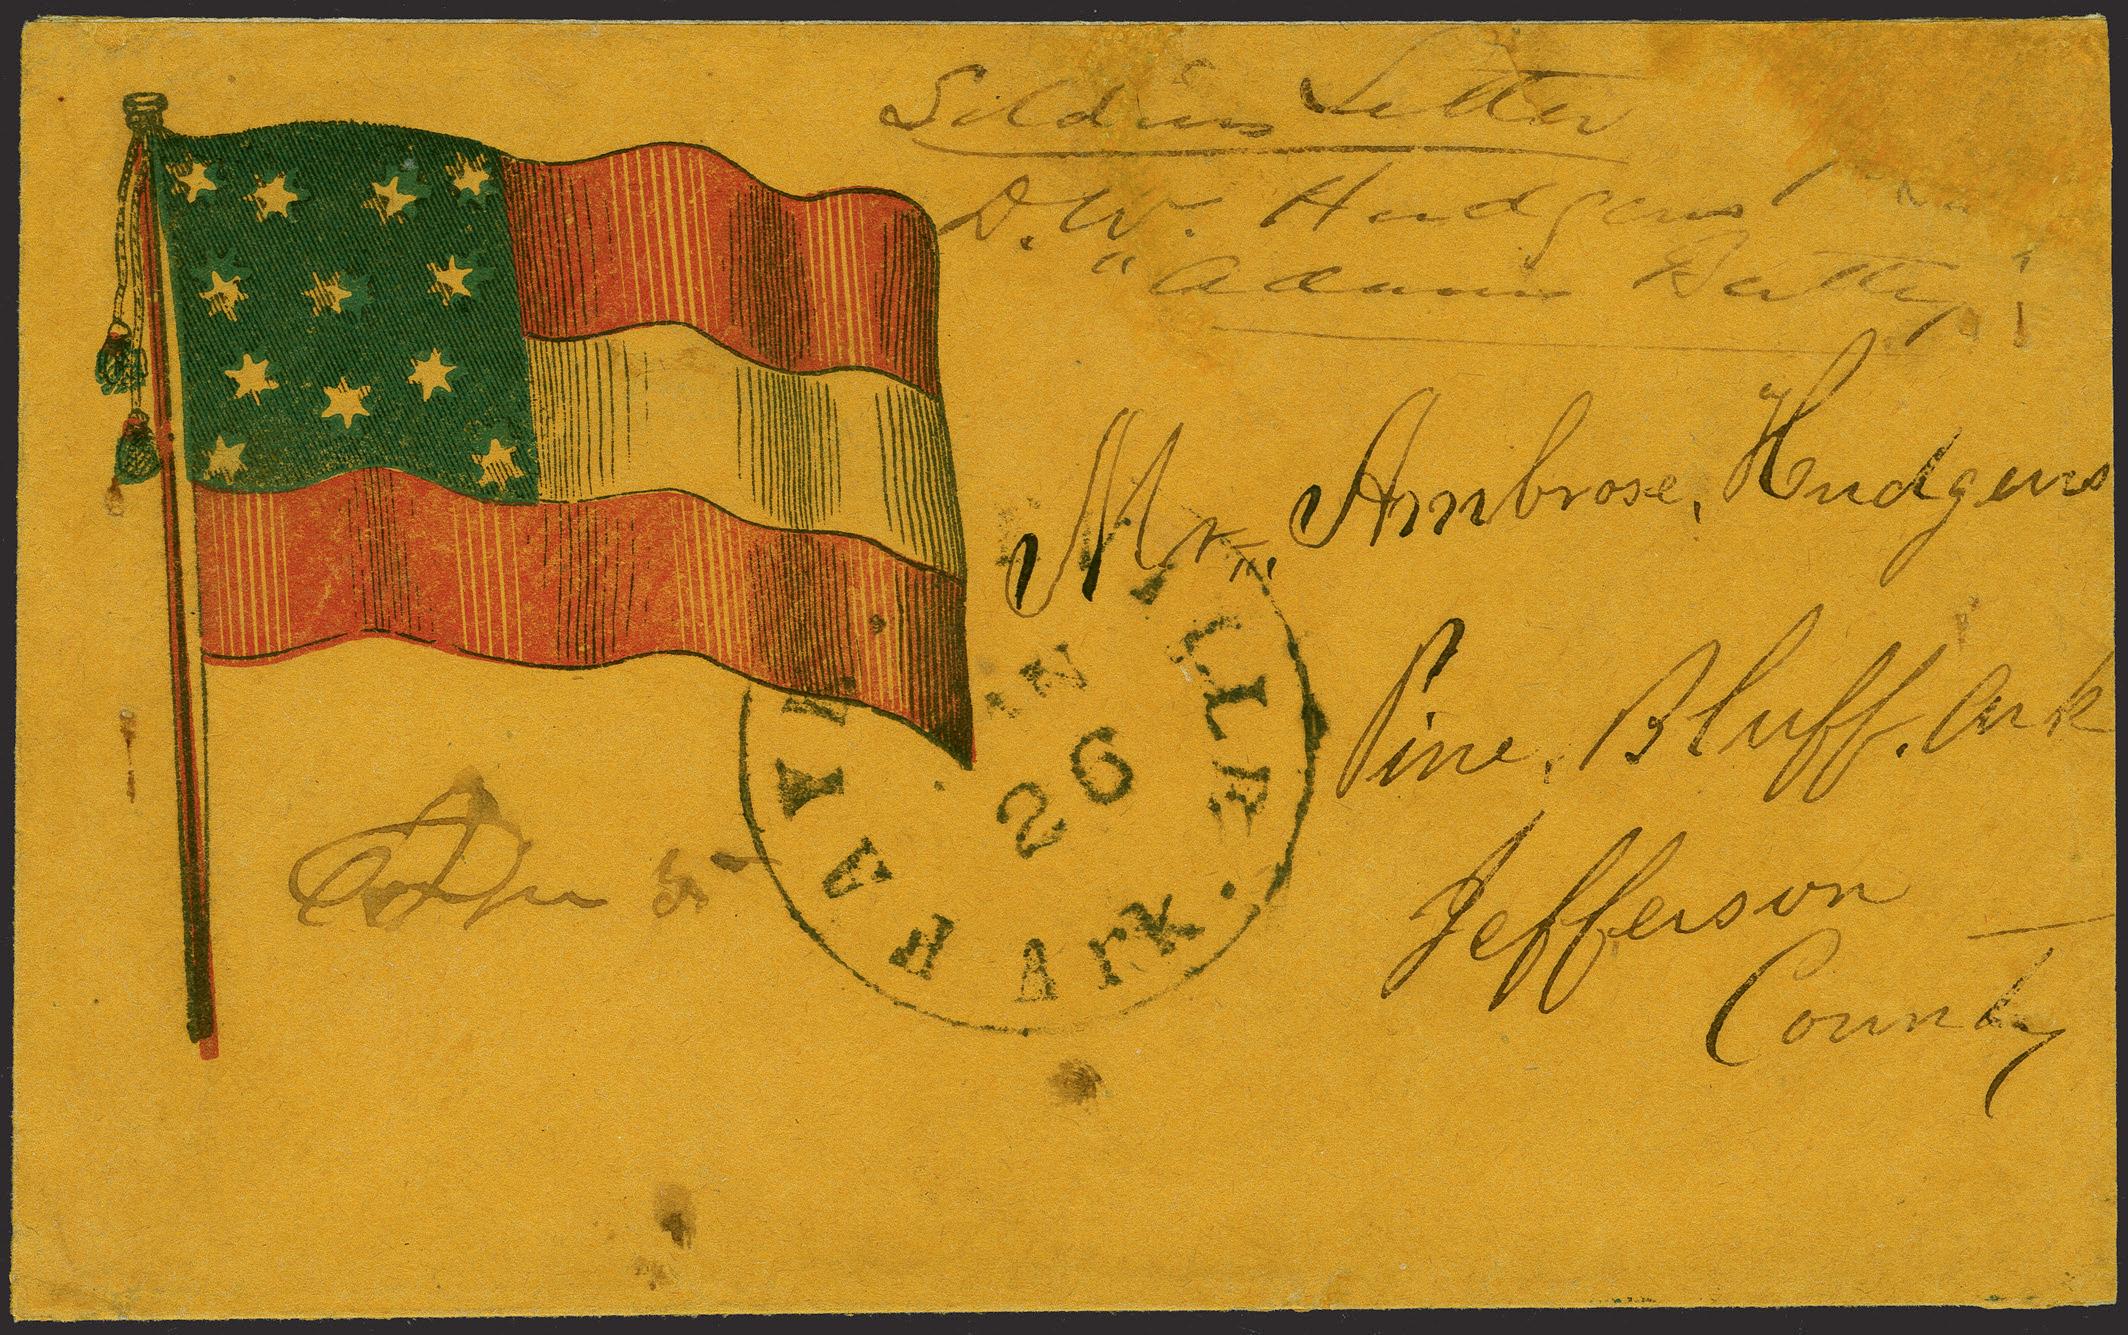 Soldiers Letter
D. W. Hudgens
"Adams Batty"
Mr. Ambrose, Hudgens
Pine, Bluff. Ark
Jefferson
County
FAYETTEVILLE
26
Ark.
Due 5